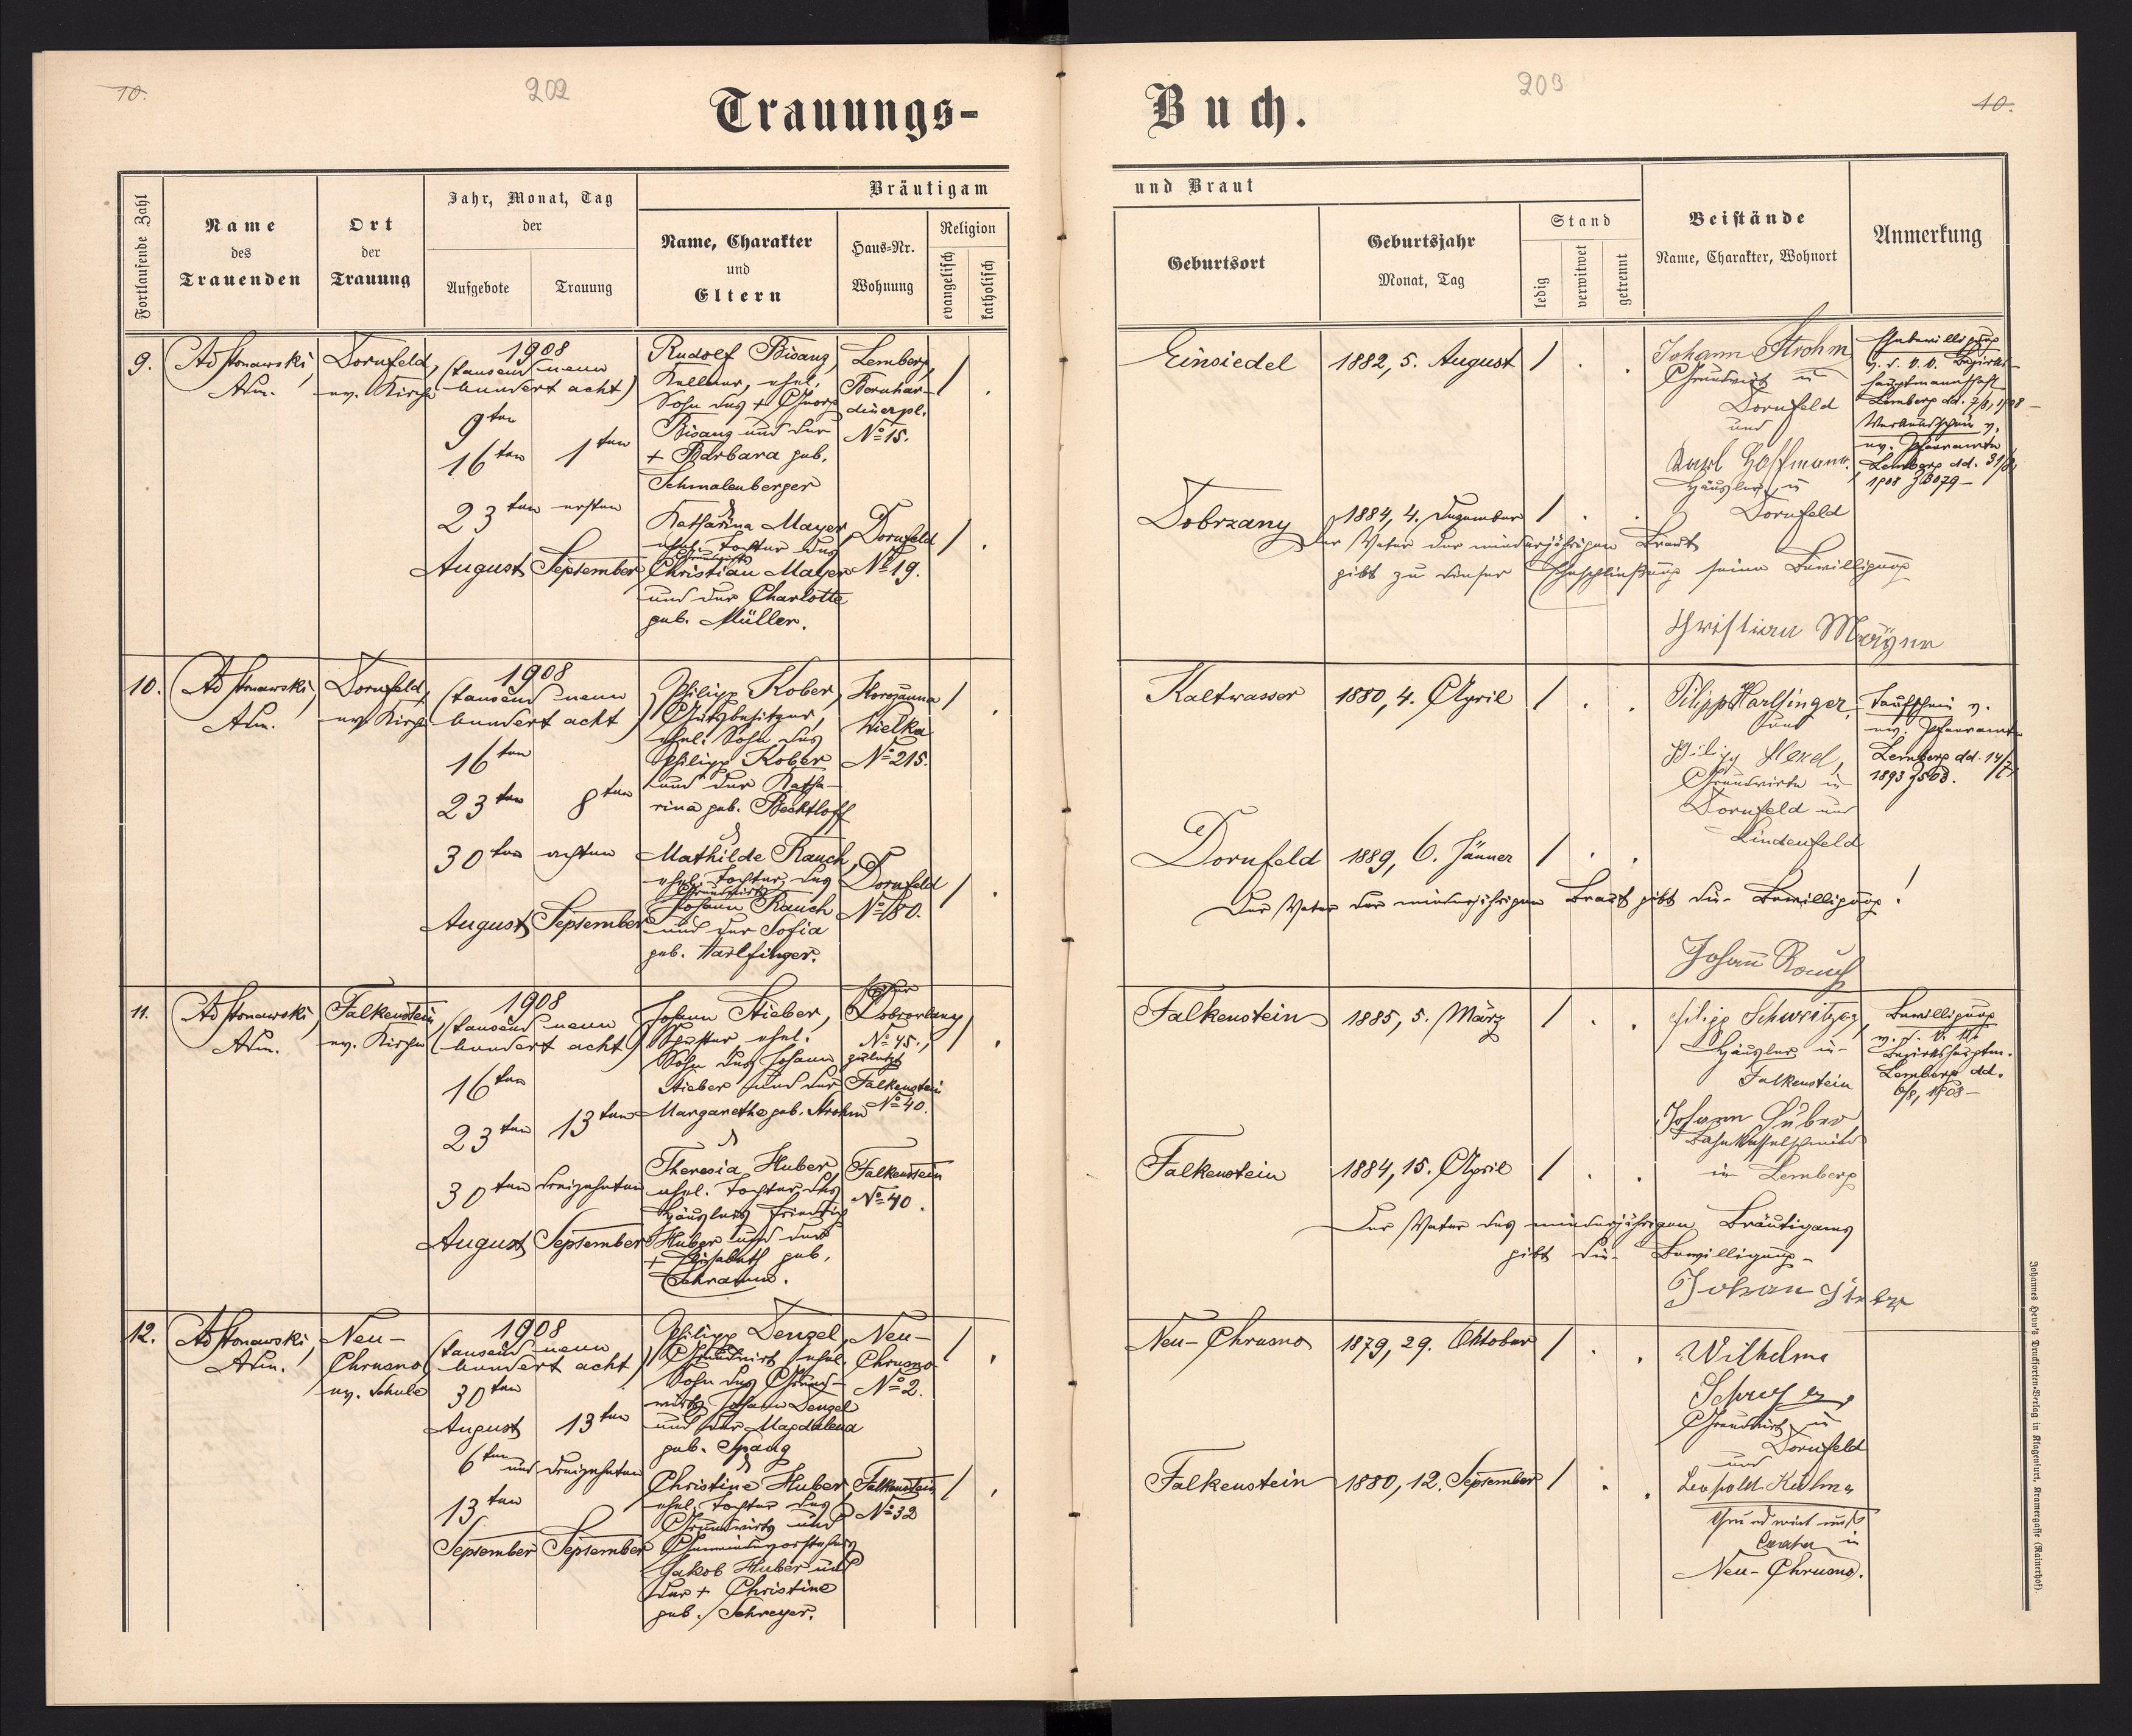 10.
202
Trauungs-
Fortlaufende Zahl
Name
des
Trauenden
Ort
der
Trauung
Jahr, Monat, Tag
der
Aufgebote
Trauung
Bräutigam
Name, Charakter
und
Eltern
Haus-Nr.
Wohnung
Religion
evangelisch
katholisch
9.
Ad Stonawski,
Adm.
Dornfeld,
ev. Kirche
1908
(tausend neun
hundert acht)
9ten
16ten
1ten
23ten
ersten
August
September
Rudolf Bisanz,
Kellner, ehel.
Sohn des + Georg
Bisanz und der
+ Barbara geb.
Schmalenberger
Lemberg,
Bernhar-
dinerpl.
No 15.
Katharina Mayer
ehel. Tochter des
Grundwirts
Christian Mayer
und der Charlotte
geb. Müller.
Dornfeld
No 19.
10.
Ad Stonawski,
Adm.
Dornfeld,
ev. Kirche
1908
(tausend neun
hundert acht)
16ten
23ten
8ten
30ten
achten
August
September
Philipp Kober,
Gutsbesitzer,
ehel. Sohn des
Philipp Kober
und der Katha-
rina geb. Bechtloff
Horozanna
Wielka
No 215.
Mathilde Rauch,
ehel. Tochter des
Grundwirts
Johann Rauch
und der Sofia
geb. Harlfinger.
Dornfeld
No 180.
11.
Ad Stonawski,
Adm.
Falkenstein,
ev. Kirche
1908
(tausend neun
hundert acht)
16ten
23ten
13ten
30ten
dreizehnten
August
September
Johann Stieber,
ehel.
Sohn des Johann
Stieber und der
Margarethe geb. Strohm
No 45.,
zuletzt
Falkenstein
No 40.
Theresia Huber
ehel. Tochter des
Häuslers Friedrich
Huber und der
+ Elisabeth geb.
Schramm.
Falkenstein
No 40.
12.
Ad Stonawski,
Adm.
Neu-
Chrusno,
ev. Schule
1908
(tausend neun
hundert acht)
30ten
August
13ten
6ten
und
dreizehnten
13ten
September
September
Philipp Denzel,
Grundwirt, ehel.
Sohn des Grund-
wirts Johann Denzel
und der Magdalena
geb. Spang
Neu-
Chrusno
No 2.
Christine Huber,
ehel. Tochter des
Grundwirts und
Gemeindevorstehers
Jakob Huber und
der + Christine
geb. Schreyer.
Falkenstein
No 32
203
10.
Buch.
und Braut
Geburtsort
Geburtsjahr
Monat, Tag
Stand
ledig
verwitwet
getrennt
Beistände
Name, Charakter, Wohnort
Anmerkung
Einsiedel
1882, 5. August
Johann Strohm
Grundwirt in
Dornfeld
und
Karl Hoffmann.
Häusler in
Dornfeld
Ehebewilligung
v. d. k. k. Bezirks-
hauptmannschaft
Lemberg dd. 7/8, 1908 -
Verkündschein v.
ev. Pfarramte
Lemberg dd. 31/8,
1908
Dobrzany
1884, 4. Dezember
Der Vater der minderjährigen Braut
gibt zu dieser Eheschließung seine Bewilligung
Christian Mayer
Kaltwasser
1880, 4. April
Filipp Harlfinger,
und
Grundwirte in
Dornfeld und
Lindenfeld
Taufschein v.
ev. Pfarramte
Lemberg dd. 14/7
1893
Dornfeld
1889, 6. Jänner
Der Vater der minderjährigen Braut gibt die Bewilligung!
Johann Rauch
Falkenstein
1885, 5. März
Filipp Schweitzer,
Häusler in
Falkenstein
Johann Huber
in Lemberg
Bewilligung
v. d. k. k.
Bezirkshauptm.
Lemberg dd.
6/8, 1908 -
Falkenstein
1884, 15. April
Der Vater des minderjährigen Bräutigams
gibt die Bewilligung -
Johan Stieber
Neu-Chrusno
1879, 29. Oktober
Wilhelm
Grundwirt in
Dornfeld
und
Leopold Kulma
Grundwirt und
in
Neu-Chrusno.
Falkenstein
1880, 12. September
Johannes Heyn's Drucksorten-Verlag in Klagenfurt, Kramergasse (Rainerhof)